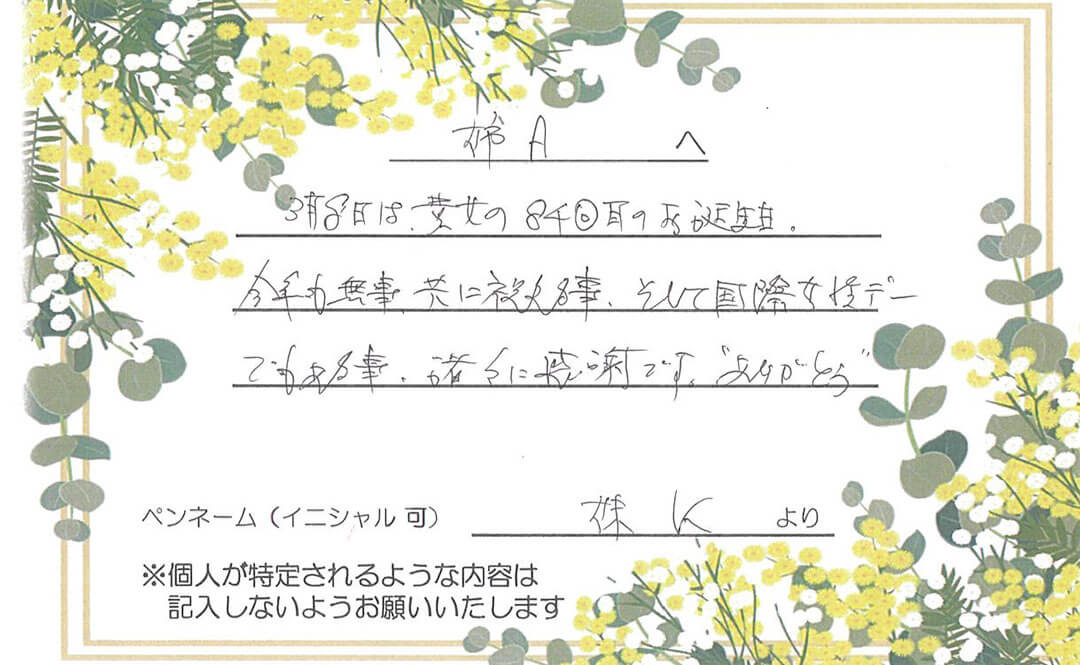 姉A へ
3月8日は、貴女の84回目のお誕生日。
今年も無事、共に祝える事、そして国際女性デー
でもある事、諸々に感謝です。"ありがとう"
ペンネーム（イニシャル 可） 妹 K より
※個人が特定されるような内容は
記入しないようお願いいたします